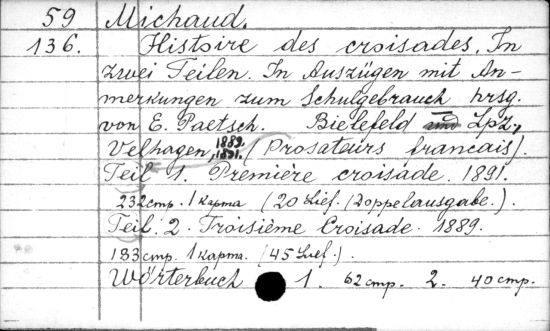 59 Michaud.
136. Histoire des croisades. In
zwei Teilen. In Auszügen mit An-
merkungen zum Schulgebrauch hrsg.
von E. Paetsch. Bielefeld und Lpz.,
Velhagen, 1889. 1891. (Prosateurs francais).
Teil 1. Première croisade. 1891.
232 стр. 1 карта (20 Lief. (Doppelausgabe.).
Teil. 2. Troisième Croisade. 1889.
183 стр. 1 карта. (45 Lief.).
Wörterbuch 1. 62 стр. 2. 40 стр.